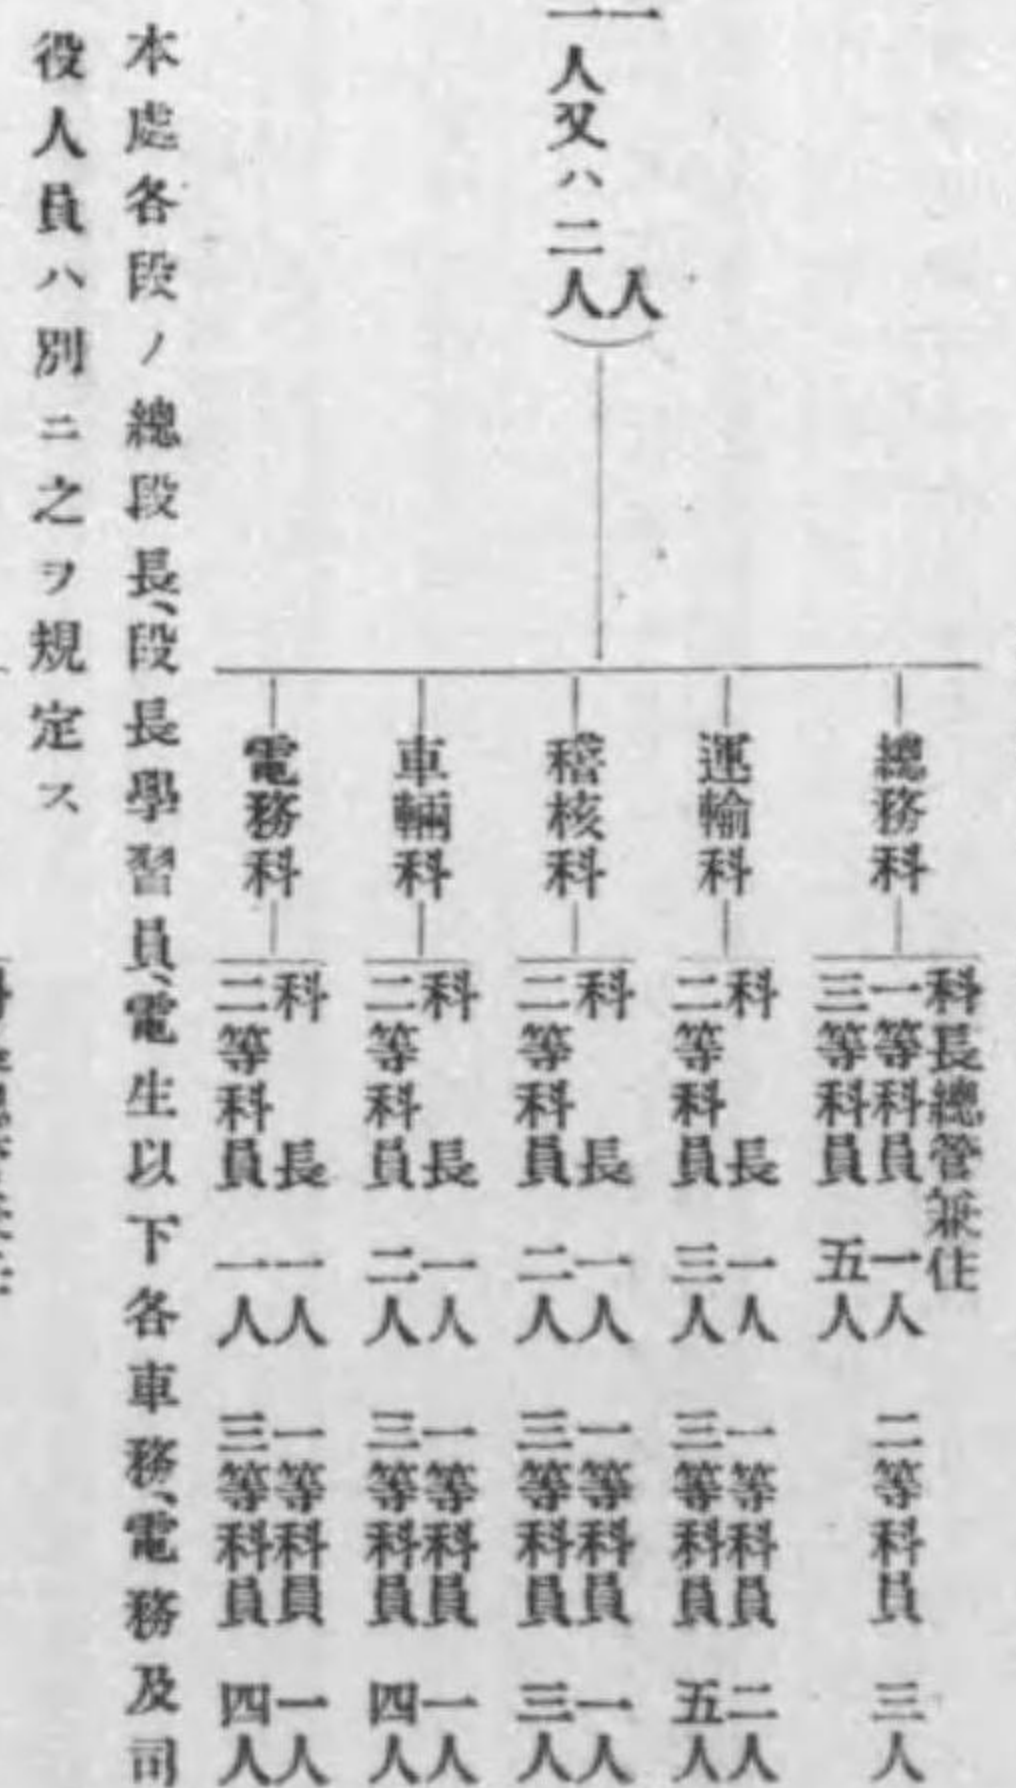 一人
一人又ハ二人
總務科
科長總管兼任
一等科員 一人 二等科員 三人
三等科員 五人
運輸科
科長 一人 一等科員 二人
二等科員 三人 三等科員 五人
稽核科
科長 一人 一等科員 一人
二等科員 二人 三等科員 三人
車輛科
科長 一人 一等科員 一人
二等科員 二人 三等科員 四人
電務科
科長 一人 一等科員 一人
二等科員 一人 三等科員 四人
本處各段ノ總段長、段長學習員、電生以下各車務、電務及司
役人員ハ別ニ之ヲ規定ス